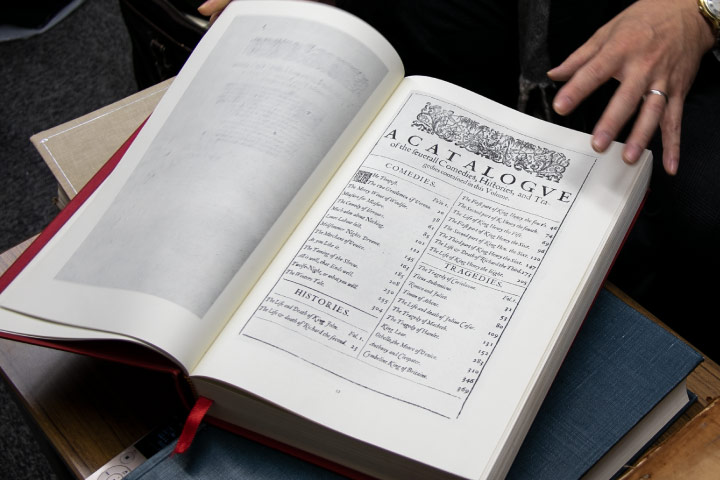 A CATALOGVE
of the seuerall Comedies, Histories, and Tra-
gedies contained in this Volume.
COMEDIES.
The Tempest. Folio 1.
The two Gentlemen of Verona. 20
The Merry Wiues of Windsor. 38
Measure for Measure. 61
The Comedy of Errours. 85
Much adoo about Nothing. 101
Loues Labour lost. 122
Midsommer Nights Dreame. 145
The Merchant of Venice. 163
As you Like it. 185
The Taming of the Shrew. 208
All is well, that Ends well. 230
Twelfe-Night, or what you will. 255
The Winters Tale. 304
HISTORIES.
The Life and Death of King John. Fol. 1.
The Life & death of Richard the second. 23
The First part of King Henry the fourth. 46
The Second part of K. Henry the fourth. 74
The Life of King Henry the Fift. 69
The First part of King Henry the Sixt. 96
The Second part of King Hen. the Sixt. 120
The Third part of King Henry the Sixt. 147
The Life & Death of Richard the Third. 173
The Life of King Henry the Eight. 205
TRAGEDIES.
The Tragedy of Coriolanus. Fol. 1.
Titus Andronicus. 31
Romeo and Juliet. 53
Timon of Athens. 80
The Life and death of Julius Cæsar. 109
The Tragedy of Macbeth. 131
The Tragedy of Hamlet. 152
King Lear. 283
Othello, the Moore of Venice. 310
Anthony and Cleopater. 346
Cymbeline King of Britaine. 369